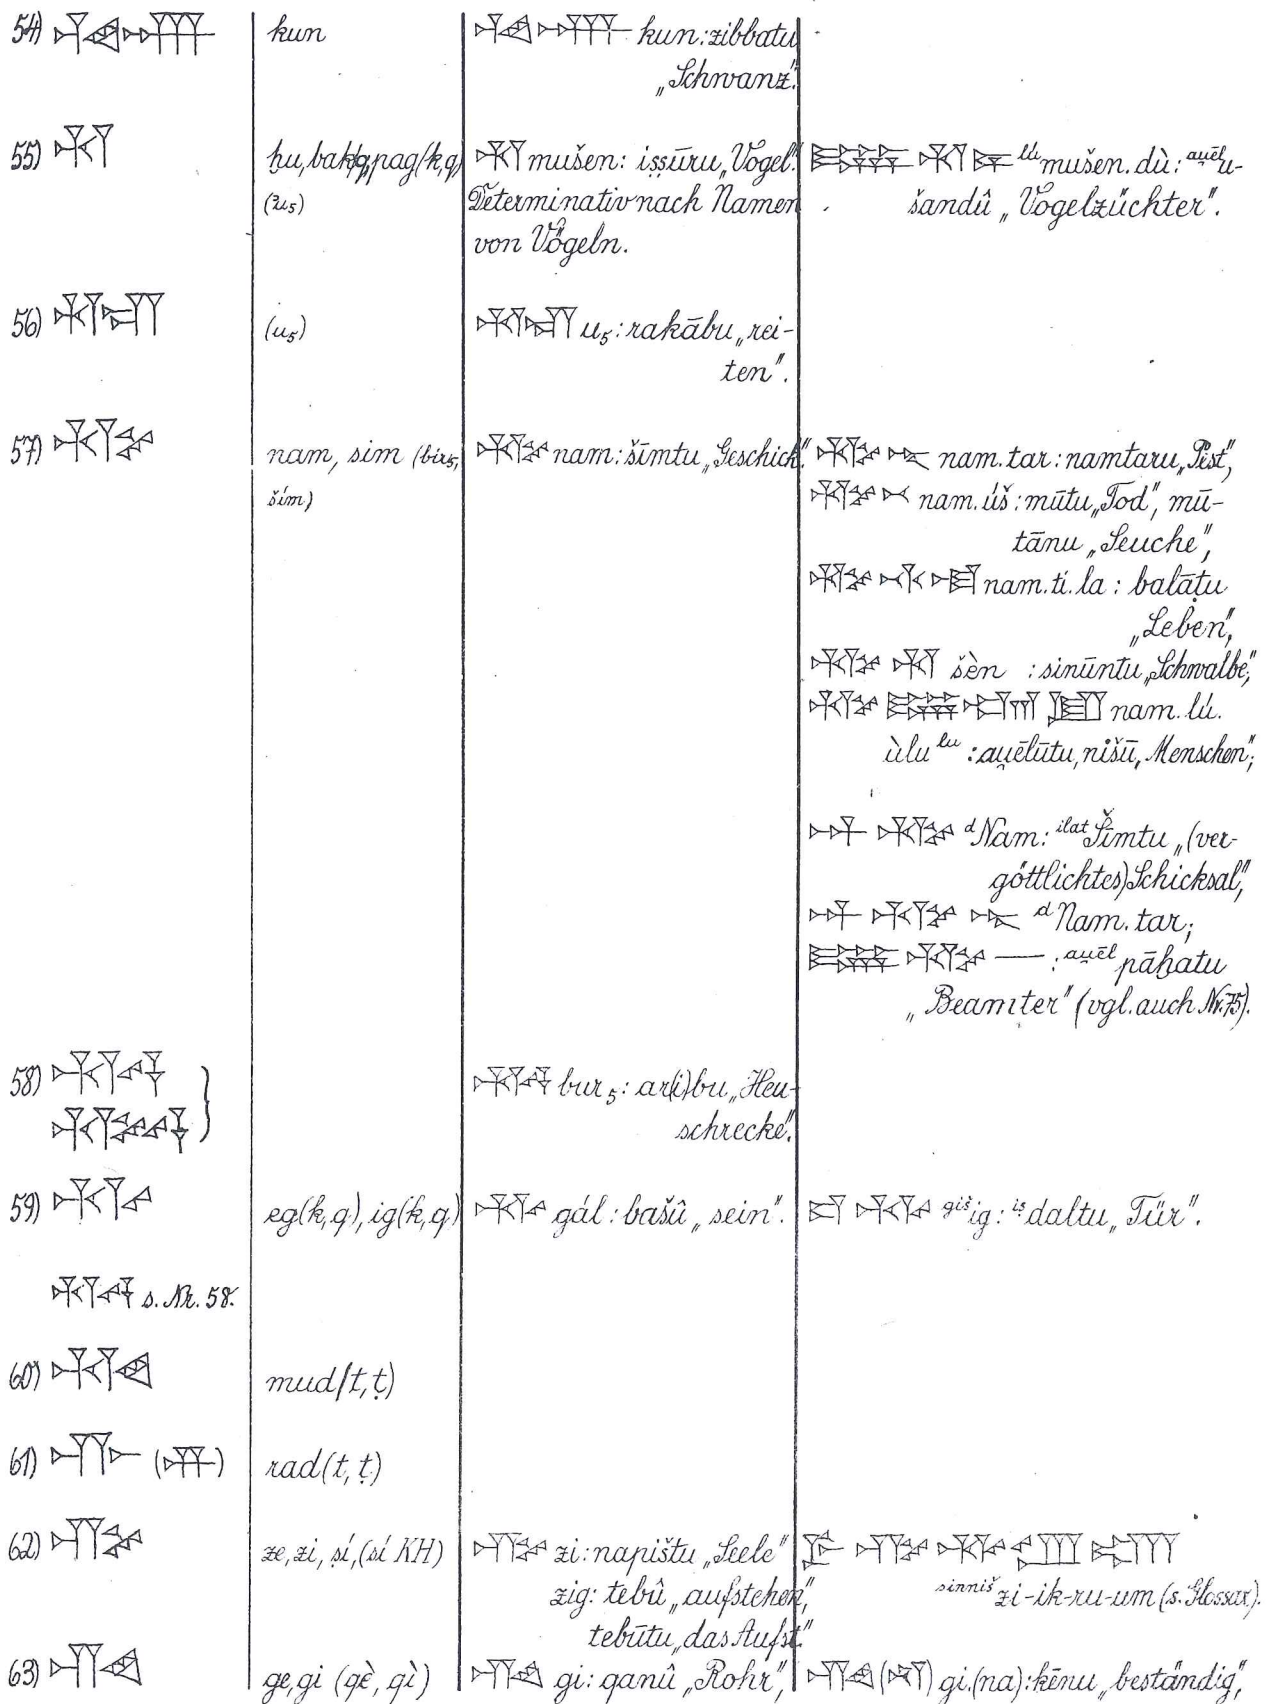 54) 𒆲 kun 𒆲 kun: zibbatu
„Schwanz".
55) 𒄷 ḫu, bak/q, pag(k,q) 𒄷 mušen: iṣṣūru „Vogel". 𒇽 𒄷 𒆕 lú mušen.dù: au̯ēl u-
(ʾu5) Determinativ nach Namen šandû „Vogelzüchter".
von Vögeln.
56) 𒄷𒋛 (u5) 𒄷𒋛 u5: rakābu „rei-
ten".
57) 𒉆 nam, sim (bir5, 𒉆 nam: šīmtu „Geschick". 𒉆 𒋻 nam.tar: namtaru „Pest",
ším) 𒉆 𒍗 nam.úš: mūtu „Tod", mū-
tānu „Seuche",
𒉆 𒋾 𒆷 nam.ti.la: balāṭu
„Leben",
𒉆 𒄷 šèn : sinūntu „Schwalbe",
𒉆 𒇽 𒌋𒇻 𒇻 nam.lú.
ùlu lu : au̯ēlūtu, nišū „Menschen";
𒀭 𒉆 d Nam: ilat Šīmtu „(ver-
göttlichtes) Schicksal",
𒀭 𒉆 𒋻 d Nam.tar;
𒇽 𒉆 — : au̯ēl pāḫatu
„Beamter" (vgl. auch Nr. 75).
58) 𒉄 𒄷 bur5: ar(i)bu „Heu-
schrecke".
59) 𒅅 eg(k,q), ig(k,q) 𒅅 gál: bašû „sein". 𒄑 𒅅 giš ig: iṣ daltu „Tür".
s. Nr. 58.
60) 𒄷𒄭 mud(t,ṭ)
61) 𒋥 rad(t,ṭ)
62) 𒍣 ze, zi, ṣí, (sí KH) 𒍣 zi: napištu „Seele" 𒊩 𒍣 𒅅 𒊒 𒌝
zig: tebû „aufstehen", sinniš zi-ik-ru-um (s. Glossar).
tebūtu „das Aufst."
63) 𒄀 ge, gi (qè, qì) 𒄀 gi: qanû „Rohr", 𒄀 (𒈾) gi.(na): kēnu „beständig",